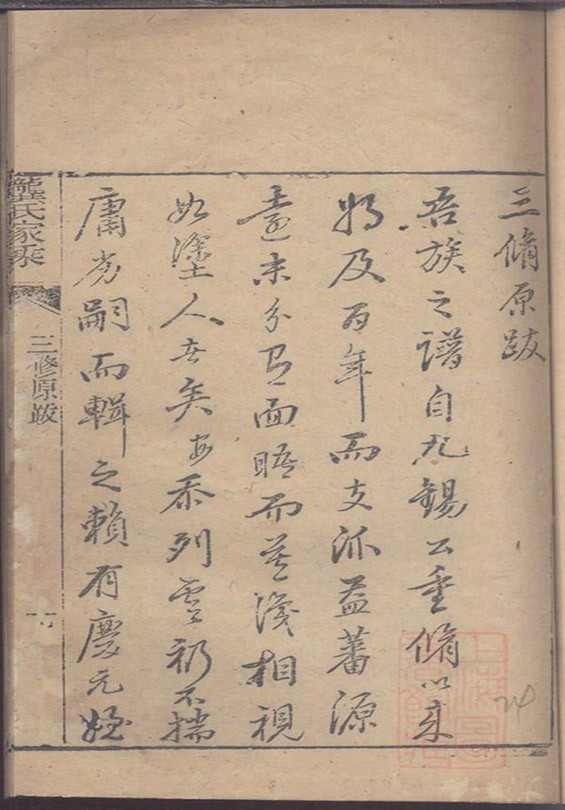 三脩原跋
吾族之譜自九錫公重脩以来
將及百年而支派益蕃源
遠未分有面晤而莫識相視
如塗人者矣安忝列雲礽不揣
庸劣嗣而輯之賴有慶元姪
龔氏家乘
三修原跋